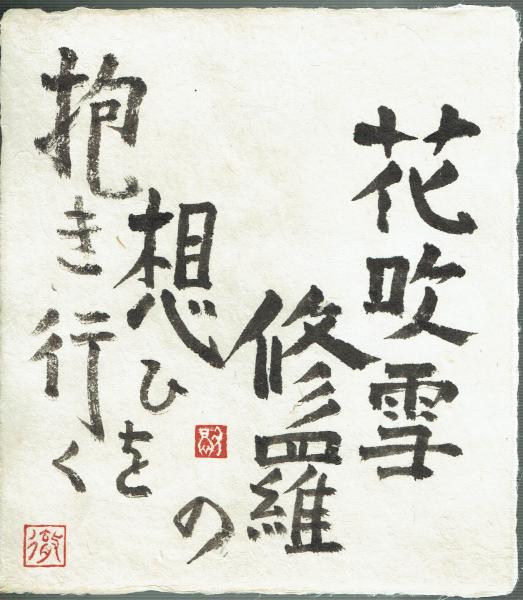 花吹雪
修羅の
想ひを
抱き行く